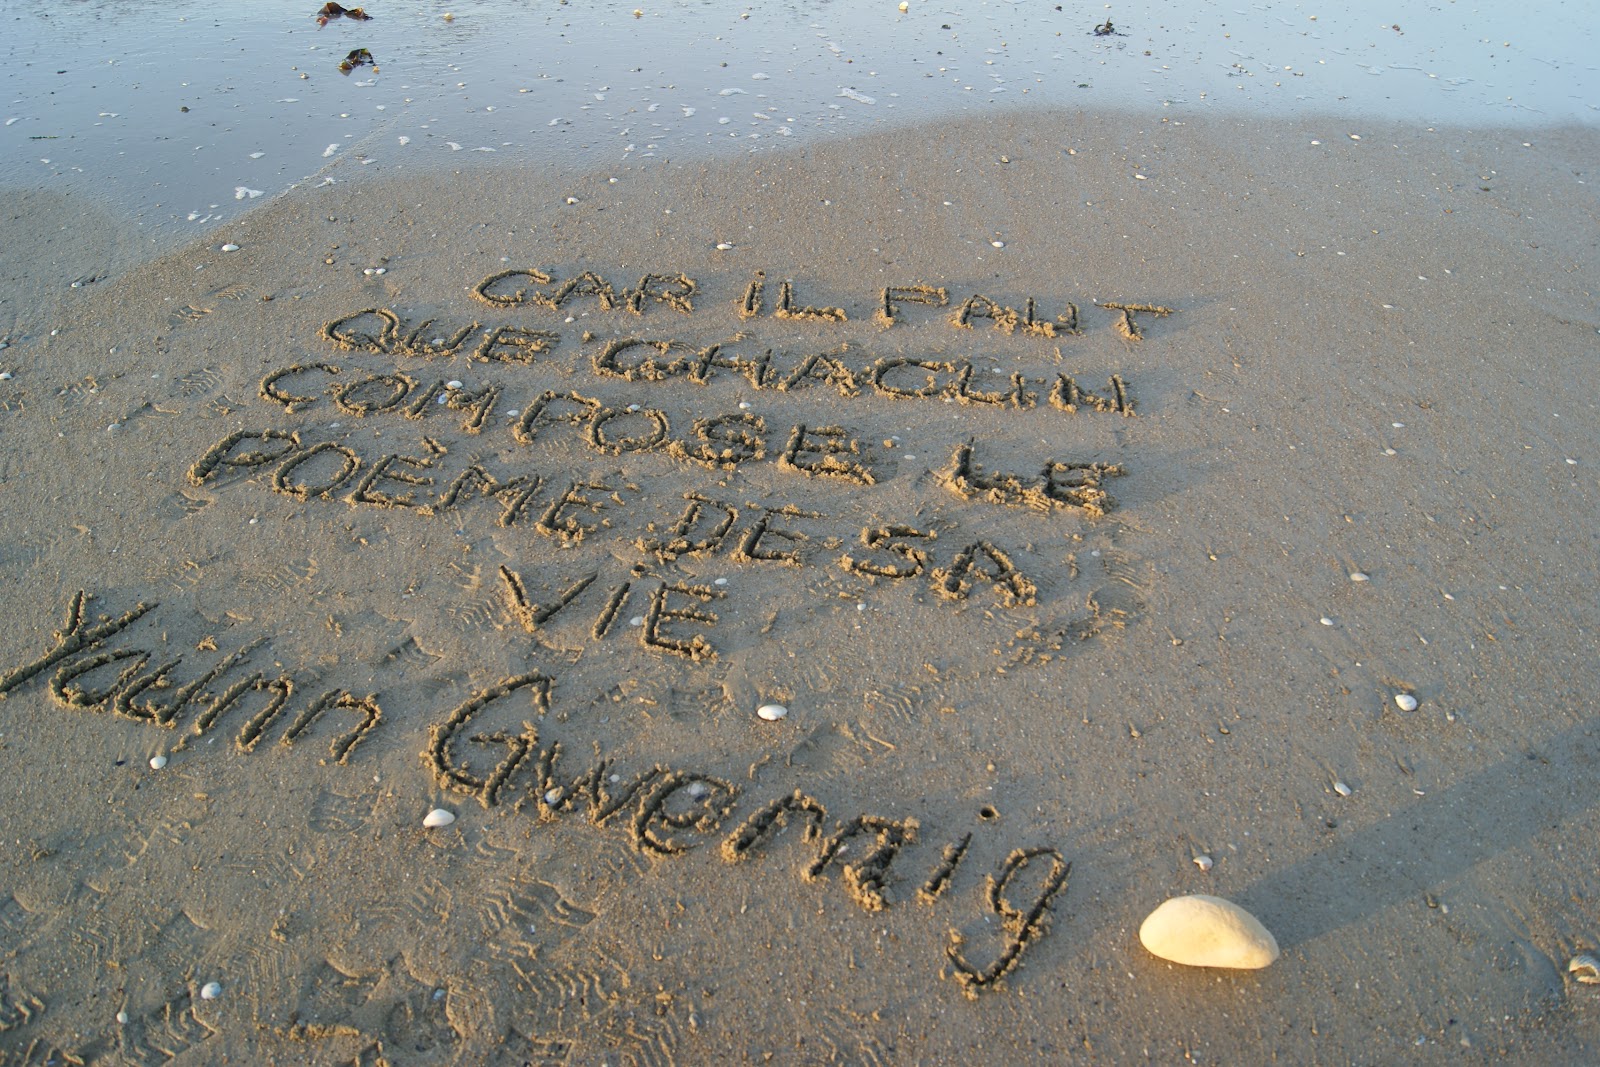 CAR IL FAUT
QUE CHACUN
COMPOSE LE
POÈME DE SA
VIE
Youinn Gwernig